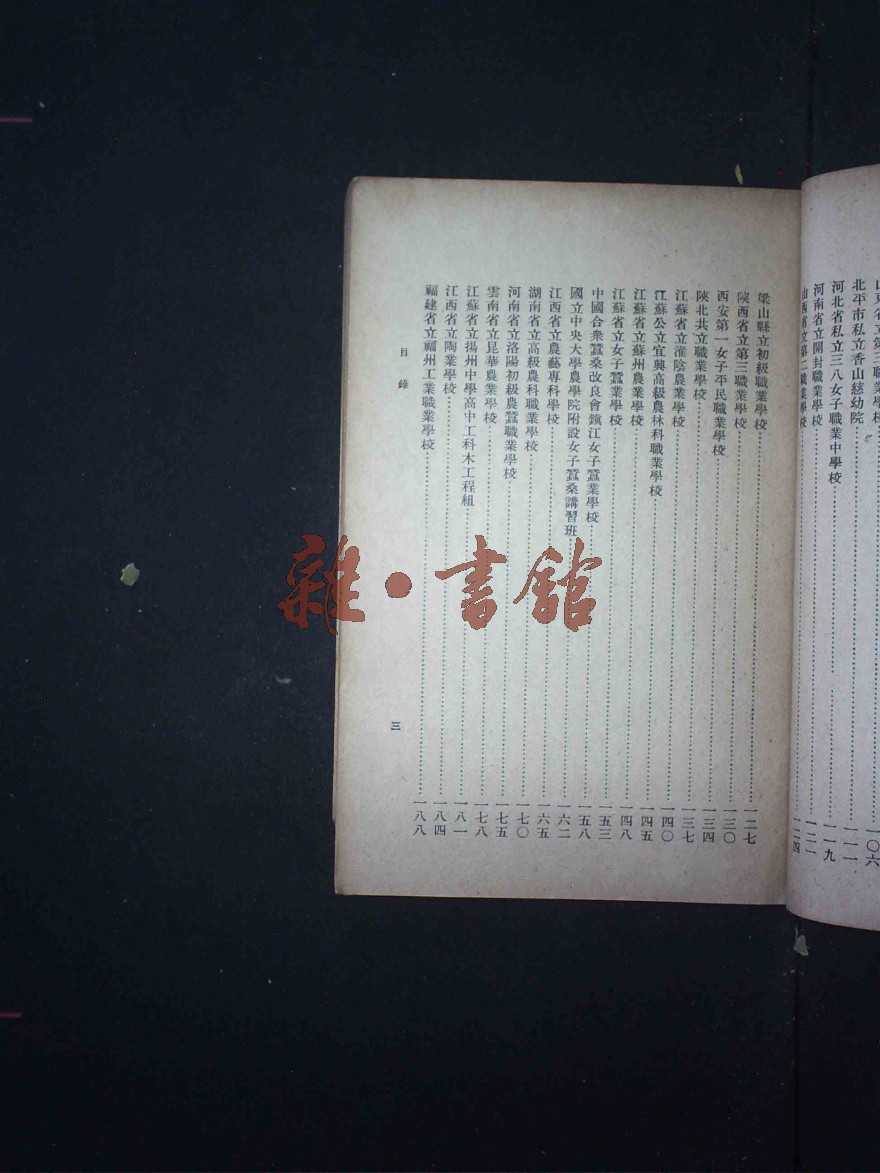 山東省立第三職業學校……一〇六
北平市私立香山慈幼院……一一一
河北省私立三八女子職業中學校……一一九
河南省立開封職業學校……一二一
山西省立第二職業學校……一二四
梁山縣立初級職業學校……一二七
陝西省立第三職業學校……一三〇
西安第一女子平民職業學校……一三四
陝北共立職業學校……一三七
江蘇省立淮陰農業學校……一四〇
江蘇公立宜興高級農林科職業學校……一四五
江蘇省立蘇州農業學校……一四八
江蘇省立女子蠶業學校……一五三
中國合衆蠶桑改良會鎭江女子蠶業學校……一五八
國立中央大學農學院附設女子蠶桑講習班……一六二
江西省立農藝專科學校……一六五
湖南省立高級農科職業學校……一七〇
河南省立洛陽初級農蠶職業學校……一七五
雲南省立昆華農業學校……一七八
江蘇省立揚州中學高中工科木工程組……一八一
江西省立陶業學校……一八四
福建省立福州工業職業學校……一八八
目錄
三
雜·書館